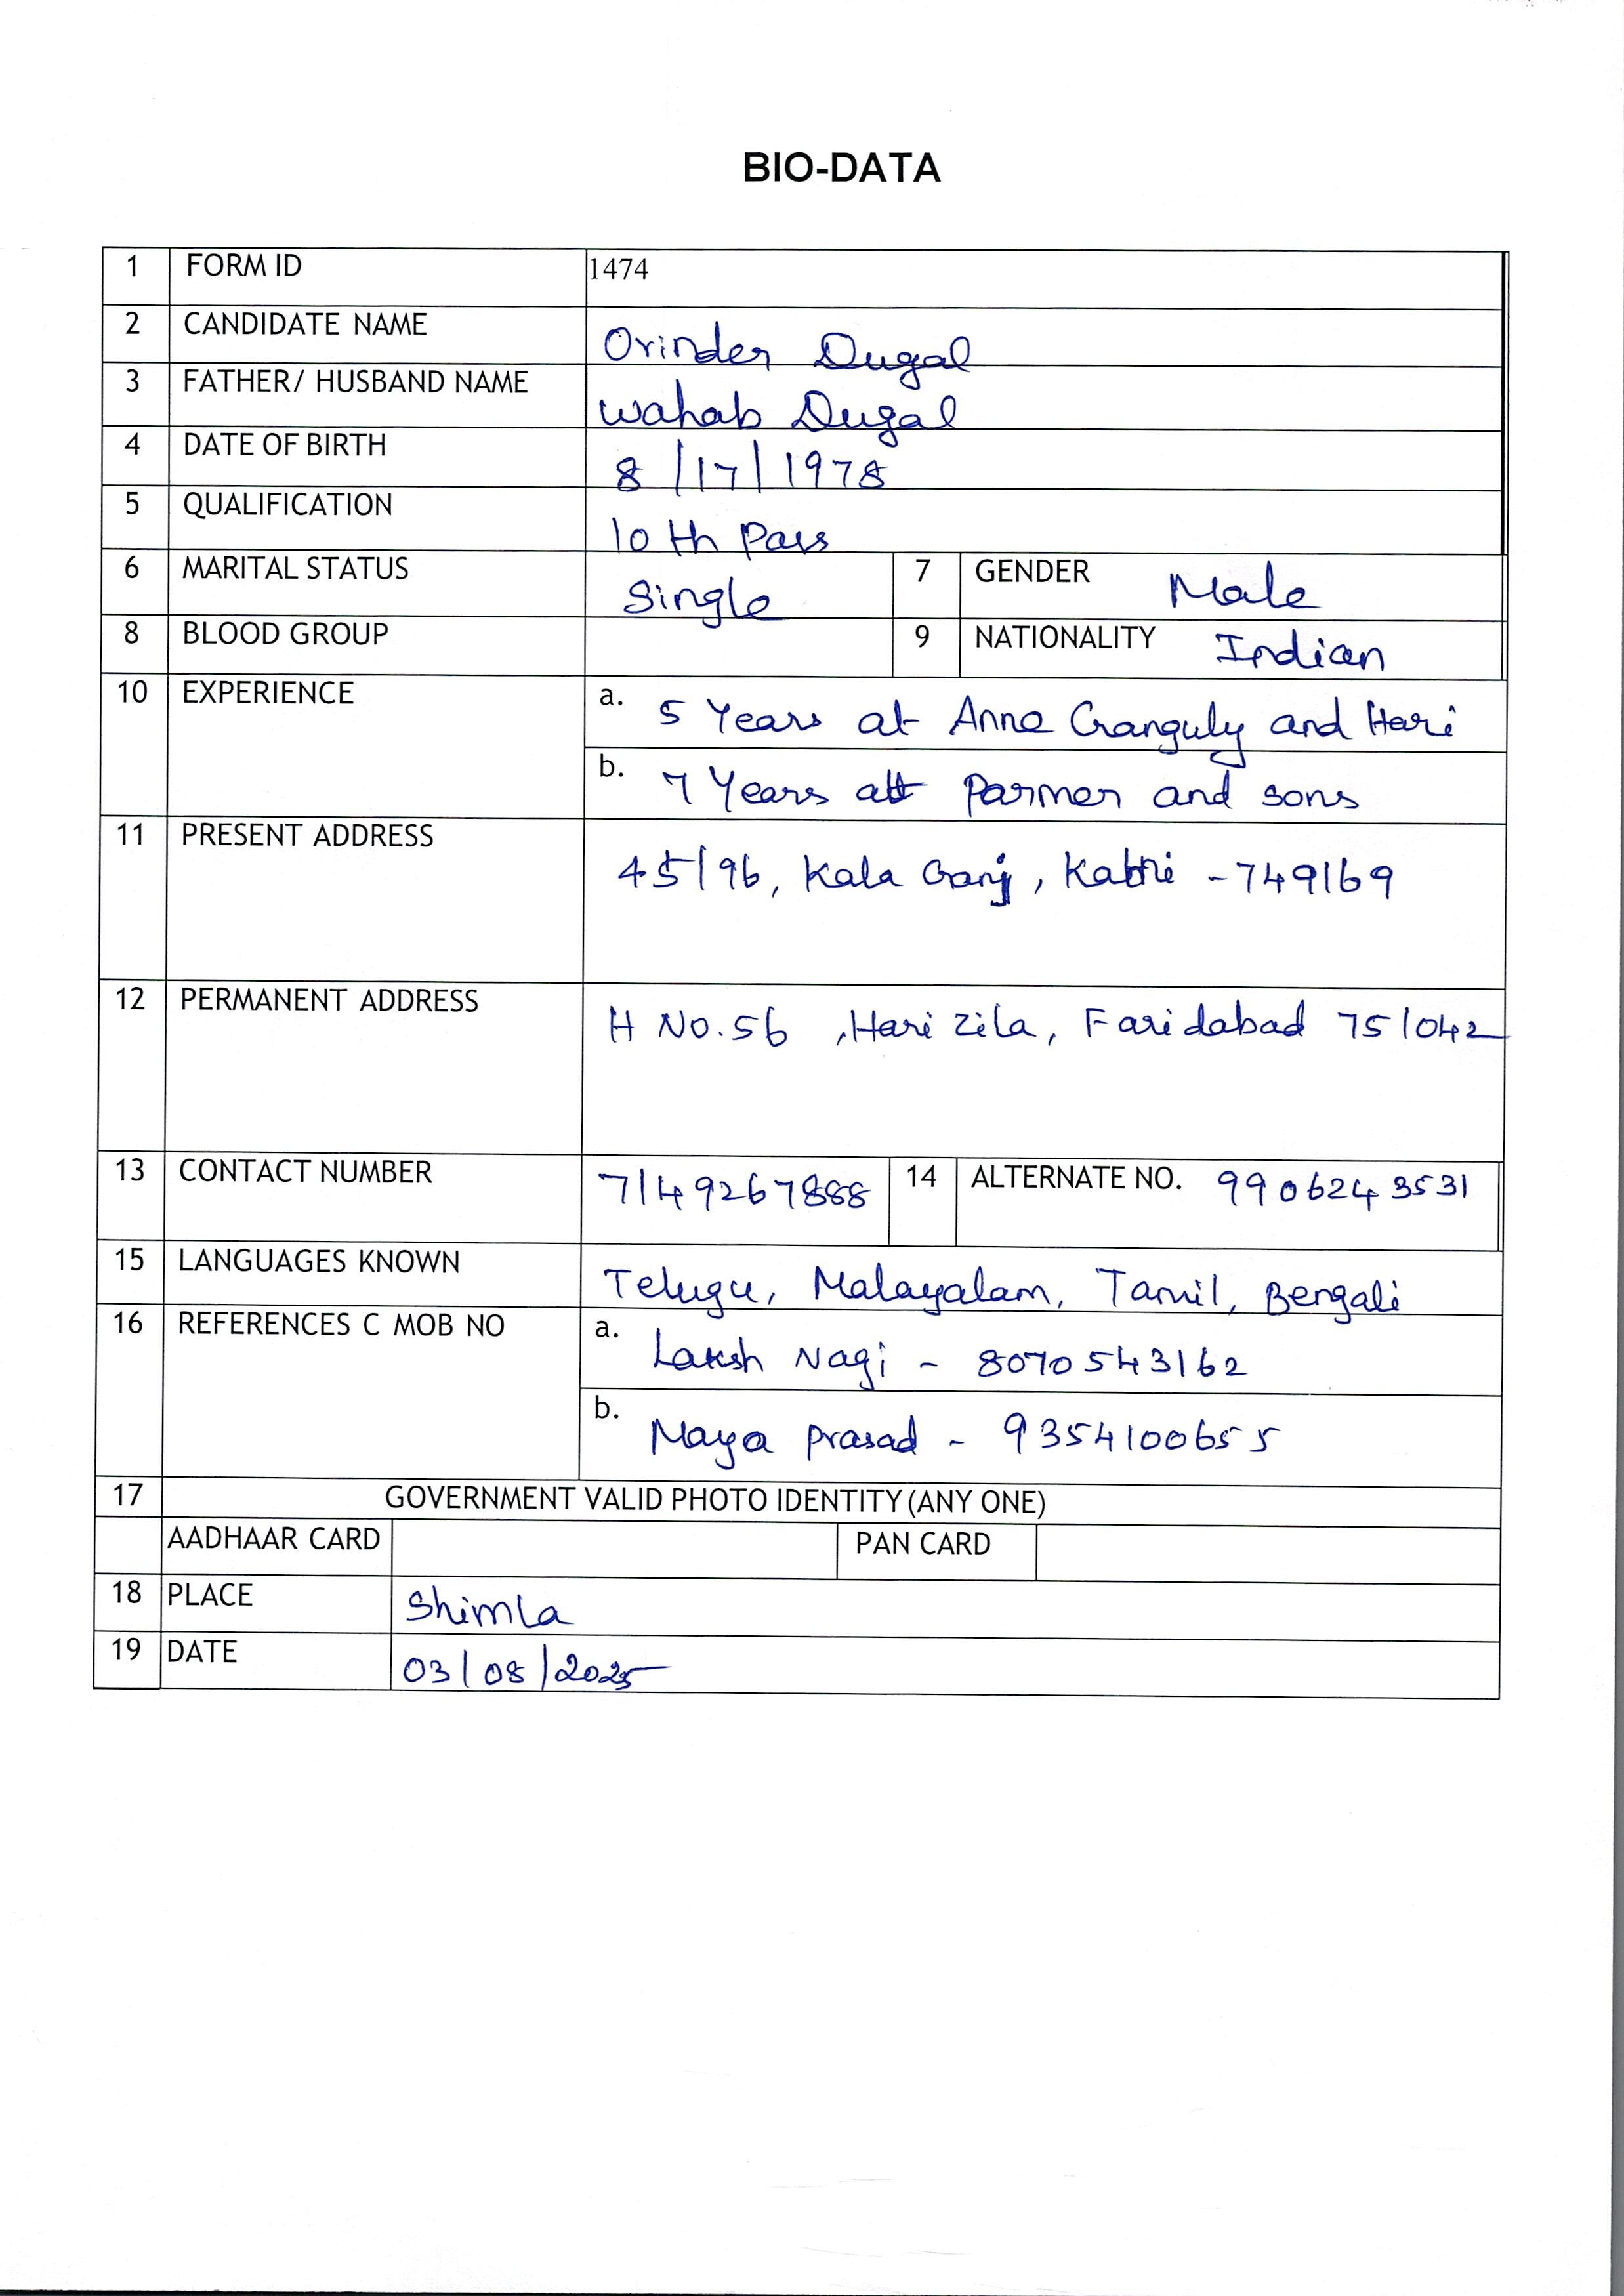 BIO-DATA
1 FORM ID 1474
2 CANDIDATE NAME Orinder Dugal
3 FATHER/ HUSBAND NAME Wahab Dugal
4 DATE OF BIRTH 8/17/1978
5 QUALIFICATION 10 th Pass
6 MARITAL STATUS Single 7 GENDER Male
8 BLOOD GROUP 9 NATIONALITY Indian
10 EXPERIENCE a. 5 Years at Anne Ganguly and Hari
b. 7 Years at Parmer and sons
11 PRESENT ADDRESS 45/96, Kala Ganj, Katni - 749169
12 PERMANENT ADDRESS H No. 56, Hari Zila, Faridabad 751042
13 CONTACT NUMBER 7149267888 14 ALTERNATE NO. 9906243531
15 LANGUAGES KNOWN Telugu, Malayalam, Tamil, Bengali
16 REFERENCES C MOB NO a. Laksh Nagi - 8070543162
b. Maya Prasad - 9354100655
17 GOVERNMENT VALID PHOTO IDENTITY (ANY ONE)
AADHAAR CARD PAN CARD
18 PLACE Shimla
19 DATE 03/08/2025